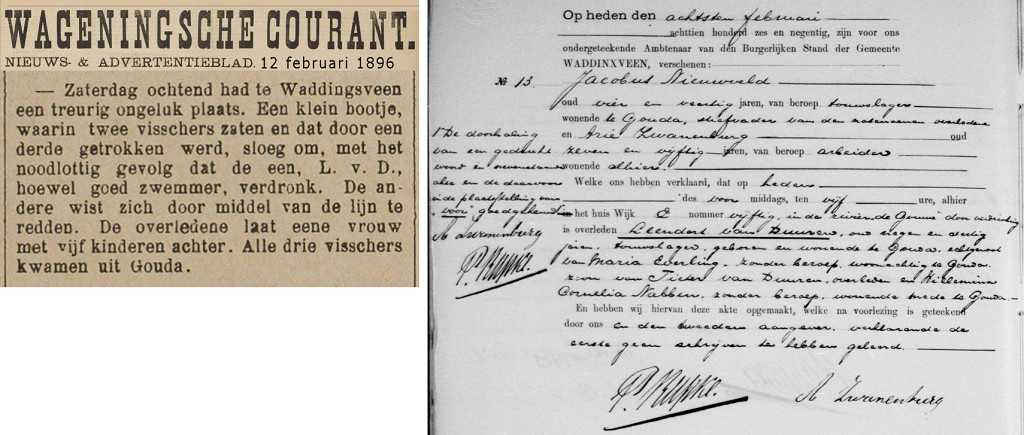 WAGENINGSCHE COURANT.
NIEUWS- & ADVERTENTIEBLAD. 12 februari 1896
— Zaterdag ochtend had te Waddingsveen
een treurig ongeluk plaats. Een klein bootje,
waarin twee visschers zaten en dat door een
derde getrokken werd, sloeg om, met het
noodlottig gevolg dat de een, L. v. D.,
hoewel goed zwemmer, verdronk. De an-
dere wist zich door middel van de lijn te
redden. De overledene laat eene vrouw
met vijf kinderen achter. Alle drie visschers
kwamen uit Gouda.
Op heden den achtsten februari
achttien honderd zes en negentig, zijn voor ons
ondergeteekende Ambtenaar van den Burgerlijken Stand der Gemeente
WADDINXVEEN, verschenen:
№ 13. Jacobus Nieuwveld
oud vier en veertig jaren, van beroep touwslager
wonende te Gouda, stiefvader van den na te noemen overledene
en Arie Zwanenburg oud
zeven en vijftig jaren, van beroep arbeider
wonende alhier.
Welke ons hebben verklaard, dat op heden
des voor middags, ten vijf ure, alhier
in het huis Wijk E nommer vijftig, in de rivier de Gouwe door verdrinking
is overleden Leendert van Duuren, oud negen en dertig
jaren, touwslager, geboren en wonende te Gouda, echtgenoot
van Maria Everling, zonder beroep, woonachtig te Gouda,
zoon van Pieter van Duuren, overleden en Willemina
Cornelia Nabben, zonder beroep, wonende mede te Gouda.
En hebben wij hiervan deze akte opgemaakt, welke na voorlezing is geteekend
door ons en den tweeden aangever, verklarende de
eerste geen schrijven te hebben geleerd.
A Zwanenburg
1 De doorhaling
van een gedrukt
woord en
alsmede daarvoor
in de plaatsstelling van
"voor" goedgekeurd
A Zwanenburg